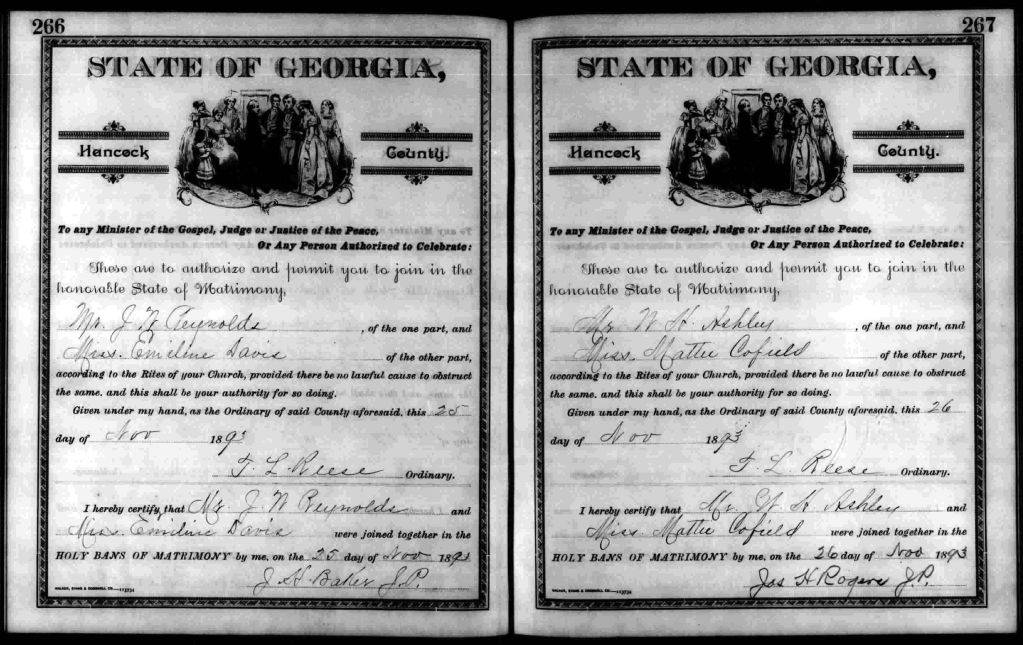 266
STATE OF GEORGIA,
Hancock County.
To any Minister of the Gospel, Judge or Justice of the Peace,
Or Any Person Authorized to Celebrate:
These are to authorize and permit you to join in the
honorable State of Matrimony,
Mr. J W Reynolds , of the one part, and
Miss. Emiline Davis of the other part,
according to the Rites of your Church, provided there be no lawful cause to obstruct
the same, and this shall be your authority for so doing.
Given under my hand, as the Ordinary of said County aforesaid, this 25
day of Nov 1893
T. L. Reese Ordinary.
I hereby certify that Mr. J. W Reynolds and
Miss. Emiline Davis were joined together in the
HOLY BANS OF MATRIMONY by me, on the 25 day of Nov 1893
J. H. Baker J.P.
267
STATE OF GEORGIA,
Hancock County.
To any Minister of the Gospel, Judge or Justice of the Peace,
Or Any Person Authorized to Celebrate:
These are to authorize and permit you to join in the
honorable State of Matrimony,
Mr W. H. Ashley , of the one part, and
Miss. Mattie Cofield of the other part,
according to the Rites of your Church, provided there be no lawful cause to obstruct
the same, and this shall be your authority for so doing.
Given under my hand, as the Ordinary of said County aforesaid, this 26
day of Nov 1893
T. L. Reese Ordinary.
I hereby certify that Mr. W H Ashley and
Miss Mattie Cofield were joined together in the
HOLY BANS OF MATRIMONY by me, on the 26 day of Nov 1893
Jas H Rogers J.P.